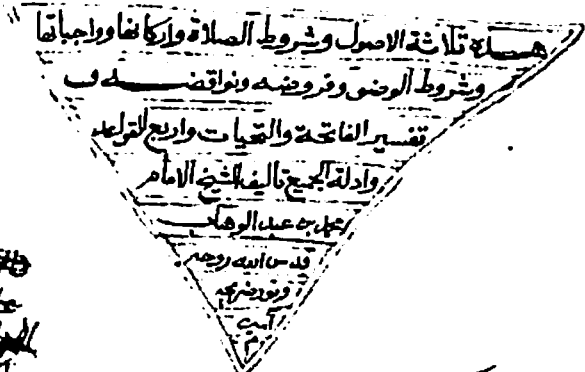 هذه ثلاثة الاصول وشروط الصلاة واركانها وواجباتها
وشروط الوضوء وفروضه ونواقضه وف
تفسير الفاتحة والتحيات واربع القواعد
وادلة الجميع تأليف الشيخ الامام
محمد بن عبد الوهاب
قدس الله روحه
ونور ضريحه
آمين
م